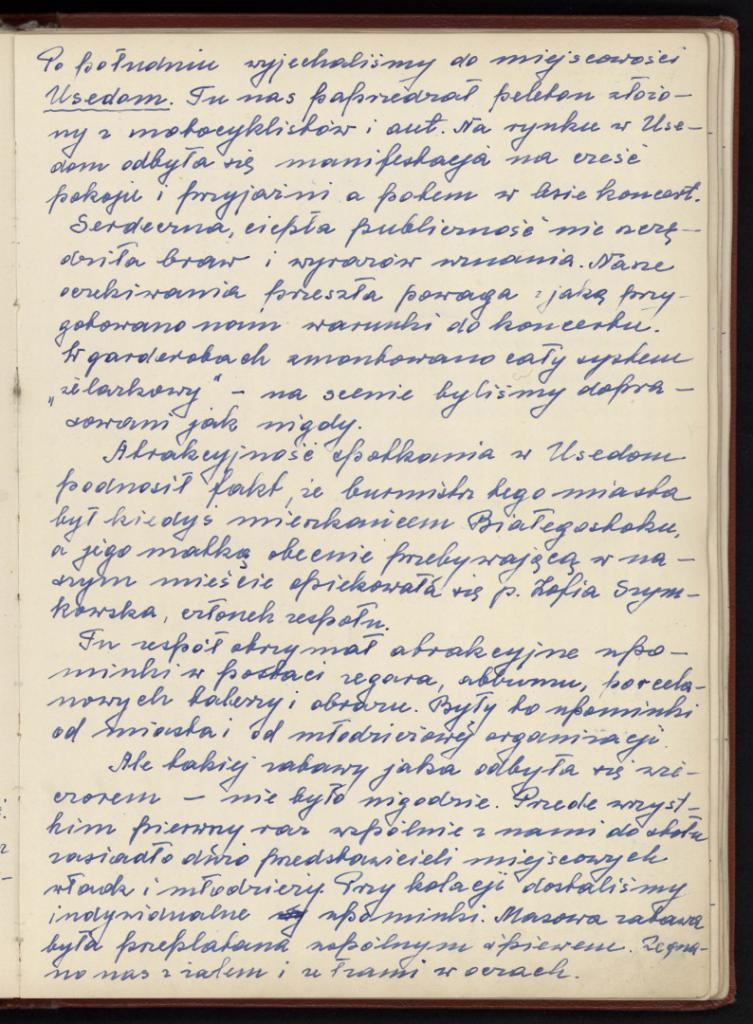 Po południu wyjechaliśmy do miejscowości
Usedom. Tu nas paprzedzał peleton złożo-
ny z motocyklistów i aut. Na rynku w Use-
dom odbyła się manifestacja na cześć
pokoju i przyjaźni a potem w lesie koncert.
Serdeczna, ciepła publiczność nie szczę-
dziła braw i wyrazów uznania. Nasze
oczekiwania przeszła powaga z jaką przy-
gotowano nam warunki do koncertu.
W garderobach zmontowano cały system
„żelazkowy" – na scenie byliśmy dopra-
sowani jak nigdy.
Atrakcyjność spotkania w Usedom
podnosił fakt, że burmistrz tego miasta
był kiedyś mieszkańcem Białegostoku,
a jego matką obecnie przebywającą w na-
szym mieście opiekowała się p. Zofia Szym-
kowska, członek zespołu.
Tu zespół otrzymał atrakcyjne upo-
minki w postaci zegara, albumu, porcela-
nowych talerzy i obrazu. Były to upominki
od miasta i od młodzieżowej organizacji.
Ale takiej zabawy jaka odbyła się wie-
czorem – nie było nigdzie. Przede wszyst-
kim pierwszy raz wspólnie z nami do stołu
zasiadło dużo przedstawicieli miejscowych
władz i młodzieży. Przy kolacji dostaliśmy
indywidualne upominki. Masowa zabawa
była przeplatana wspólnym śpiewem. Żegna-
no nas z żalem i ze łzami w oczach.